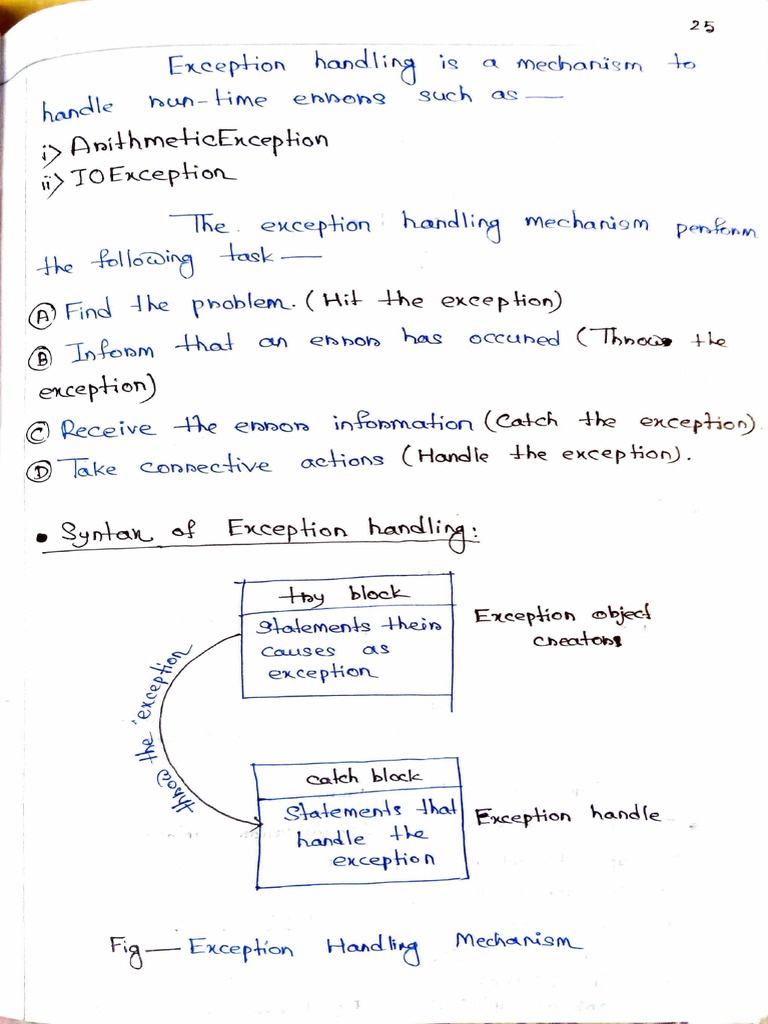 25
Exception handling is a mechanism to
handle run-time errors such as —
i> ArithmeticException
ii> IOException
The exception handling mechanism perform
the following task —
(A) Find the problem. (Hit the exception)
(B) Inform that an error has occured (Throw the
exception)
(C) Receive the error information (Catch the exception)
(D) Take corrective actions (Handle the exception).
• Syntax of Exception handling:
try block
Statements their
causes as
exception
Exception object
creators
throw the exception
catch block
Statements that
handle the
exception
Exception handle
Fig — Exception Handling Mechanism